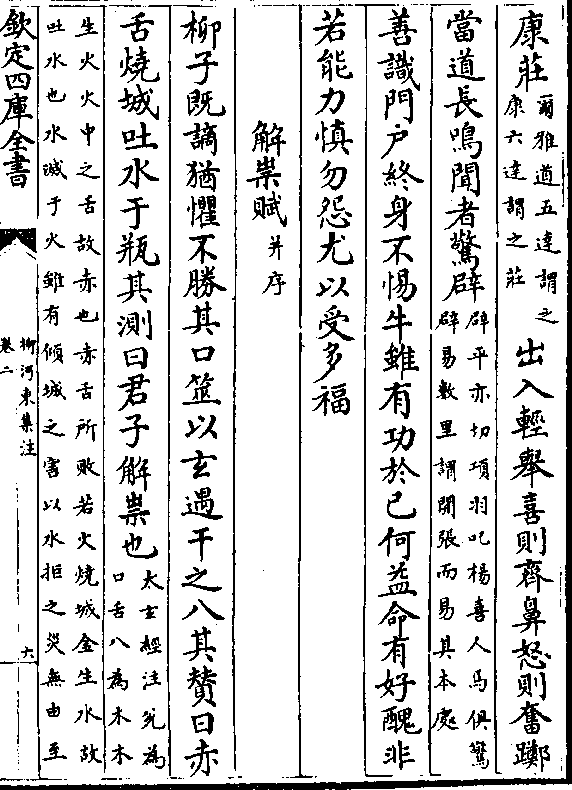 康莊爾雅道五達謂之康六達謂之莊出入輕舉喜則齊鼻怒則奮躑
當道長鳴聞者驚辟辟平亦切項羽叱楊喜人馬俱驚辟易數里謂開張而易其本處
善識門户終身不惕牛雖有功於已何益命有好醜非
若能力慎勿怨尤以受多福
解祟賦并序
柳子既謫猶懼不勝其口筮以玄遇干之八其贊曰赤
舌燒城吐水于瓶其測曰君子解祟也太玄經注兊為口舌八為木木
生火火中之舌故赤也赤舌所敗若火燒城金生水故吐水也水滅于火雖有傾城之害以水拒之災無由至
欽定四庫全書
柳河東集注
卷二
六